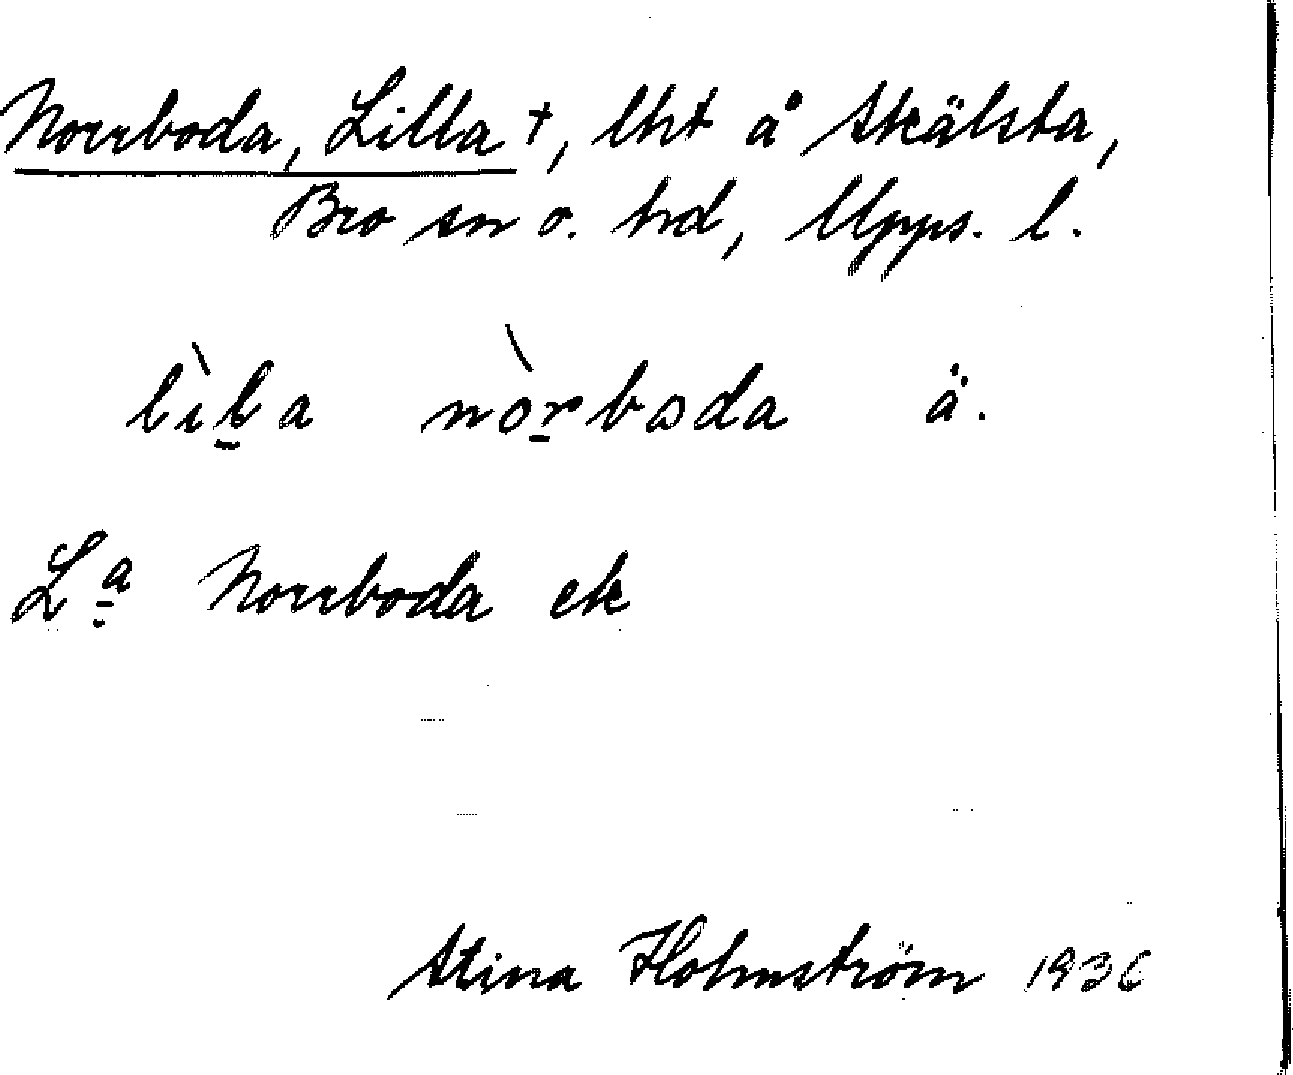 Norrboda, Lilla †, lht å Skälsta,
Bro sn o. hd, Upps. l.
lìl̲a nòr̲bɷda ä.
Lª Norrboda ek
Stina Holmström 1936